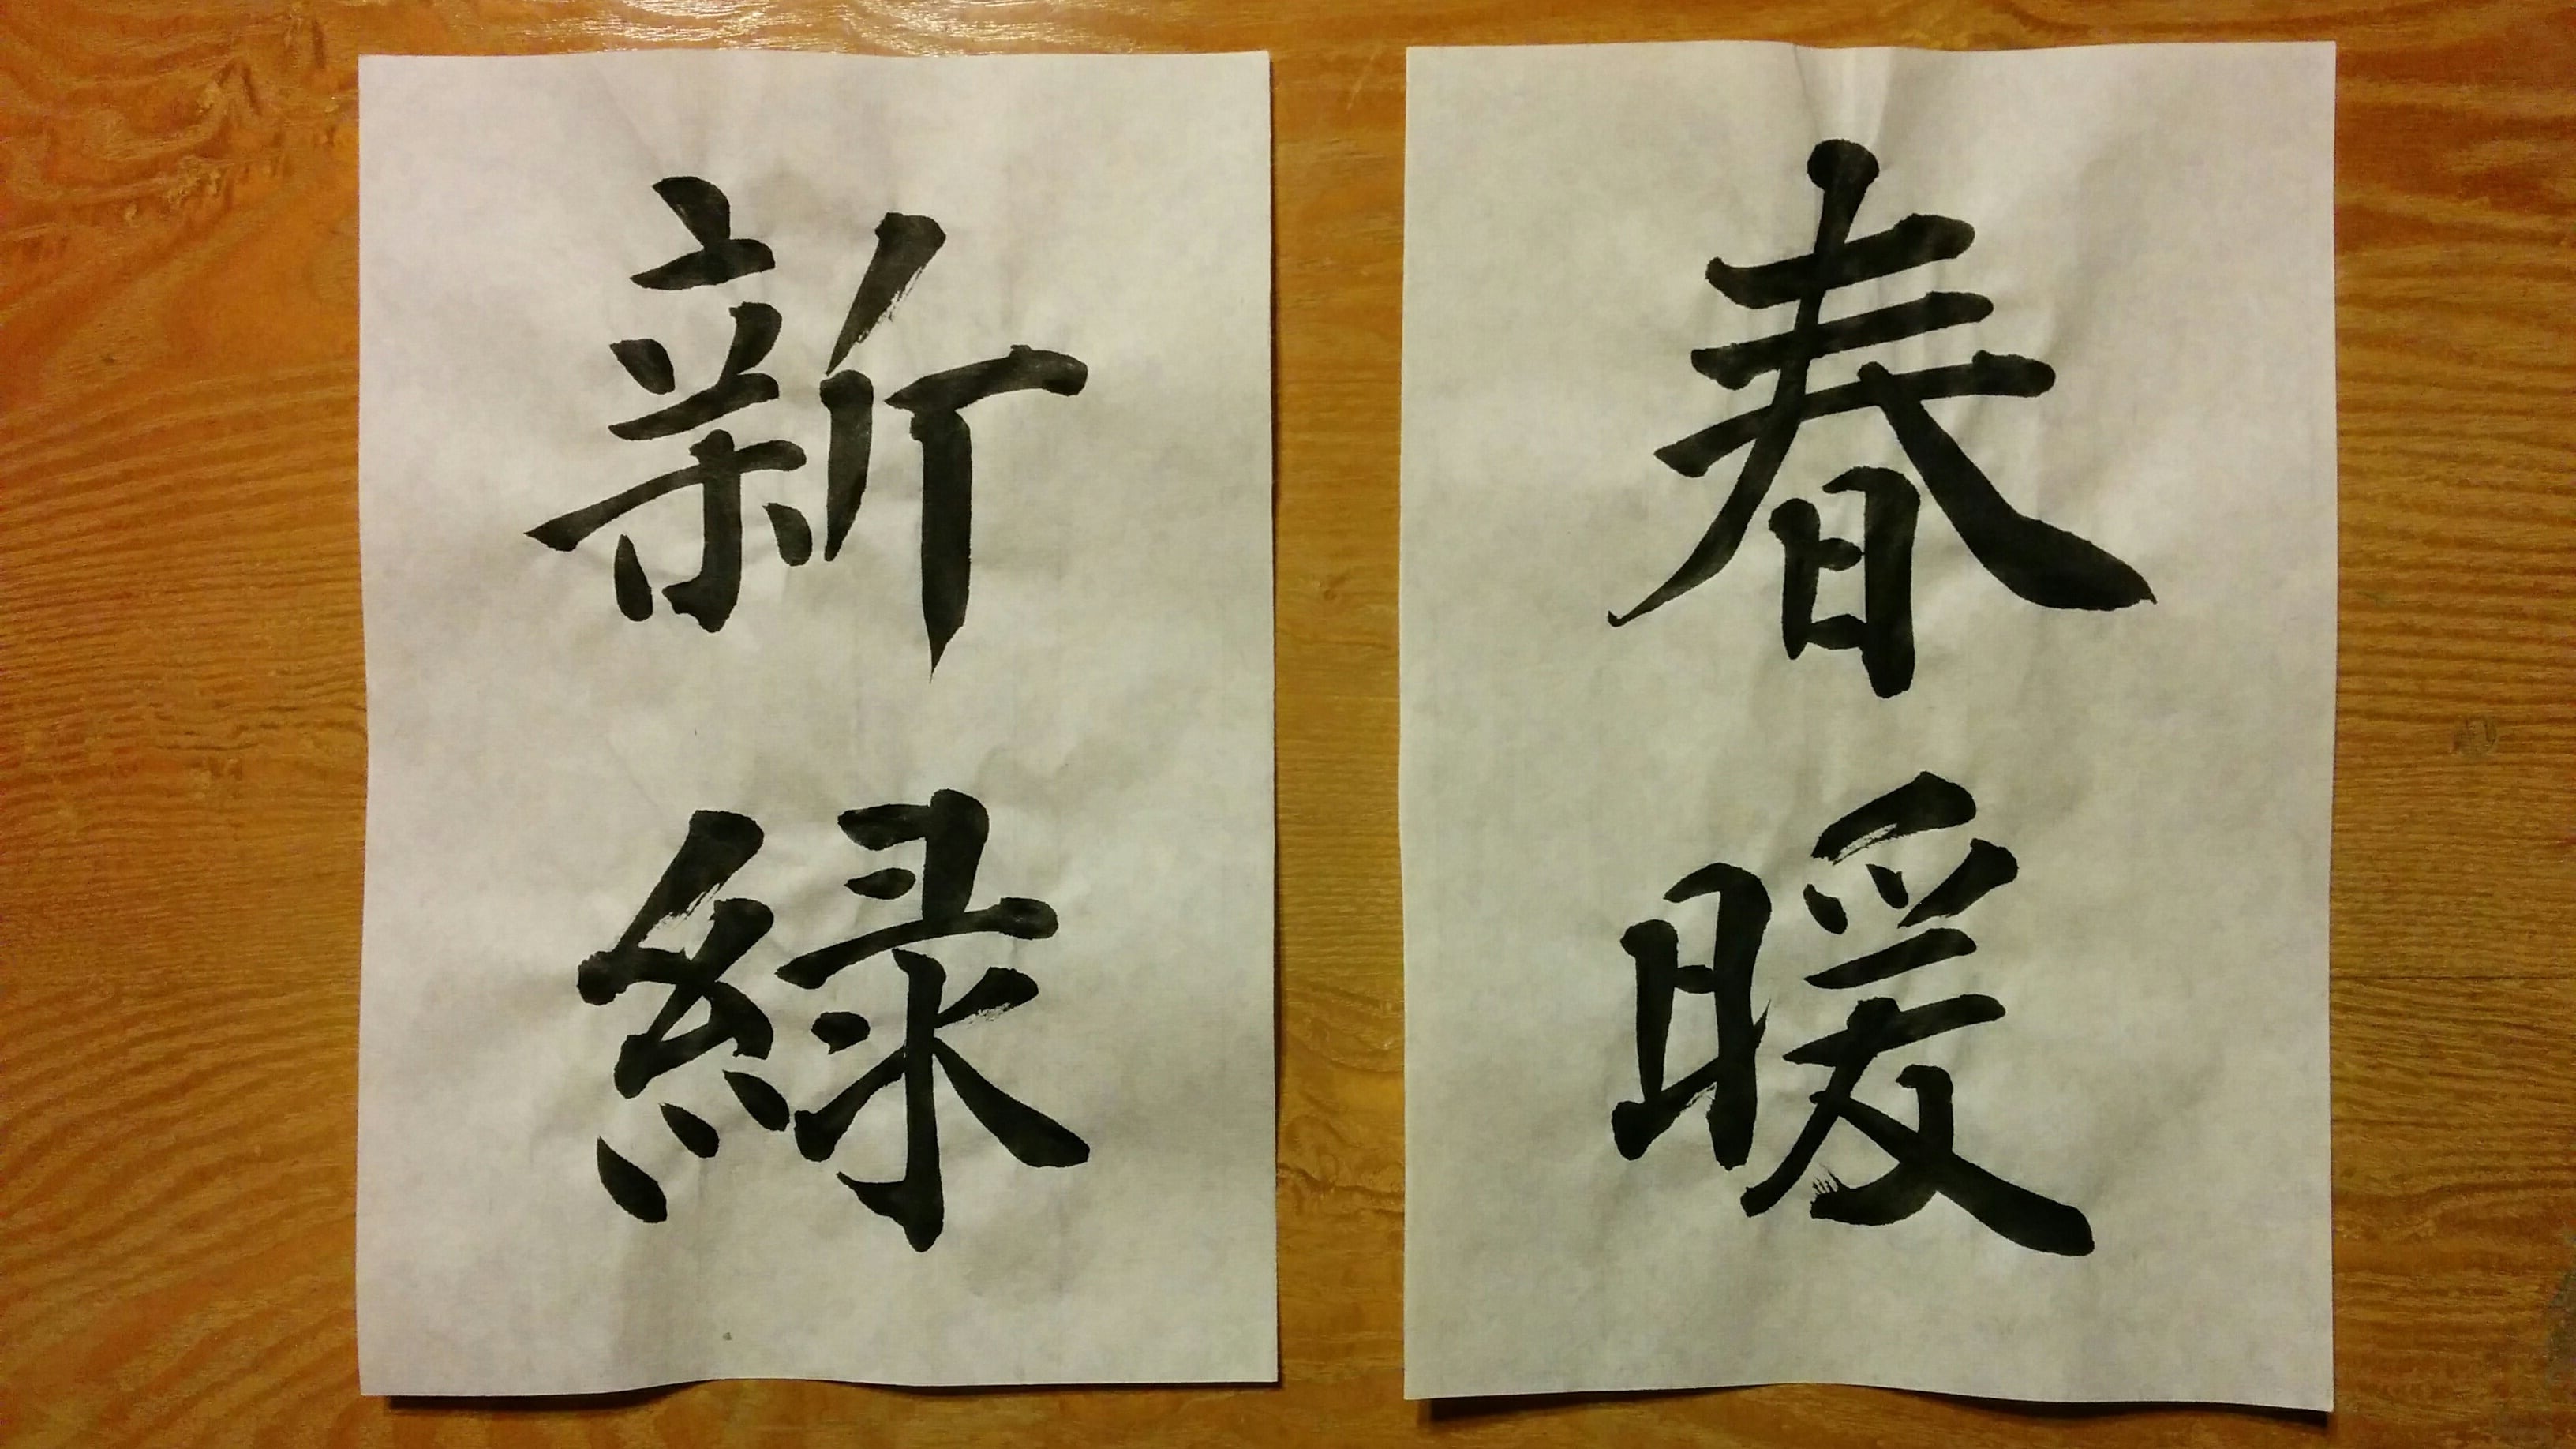 春暖
新緑